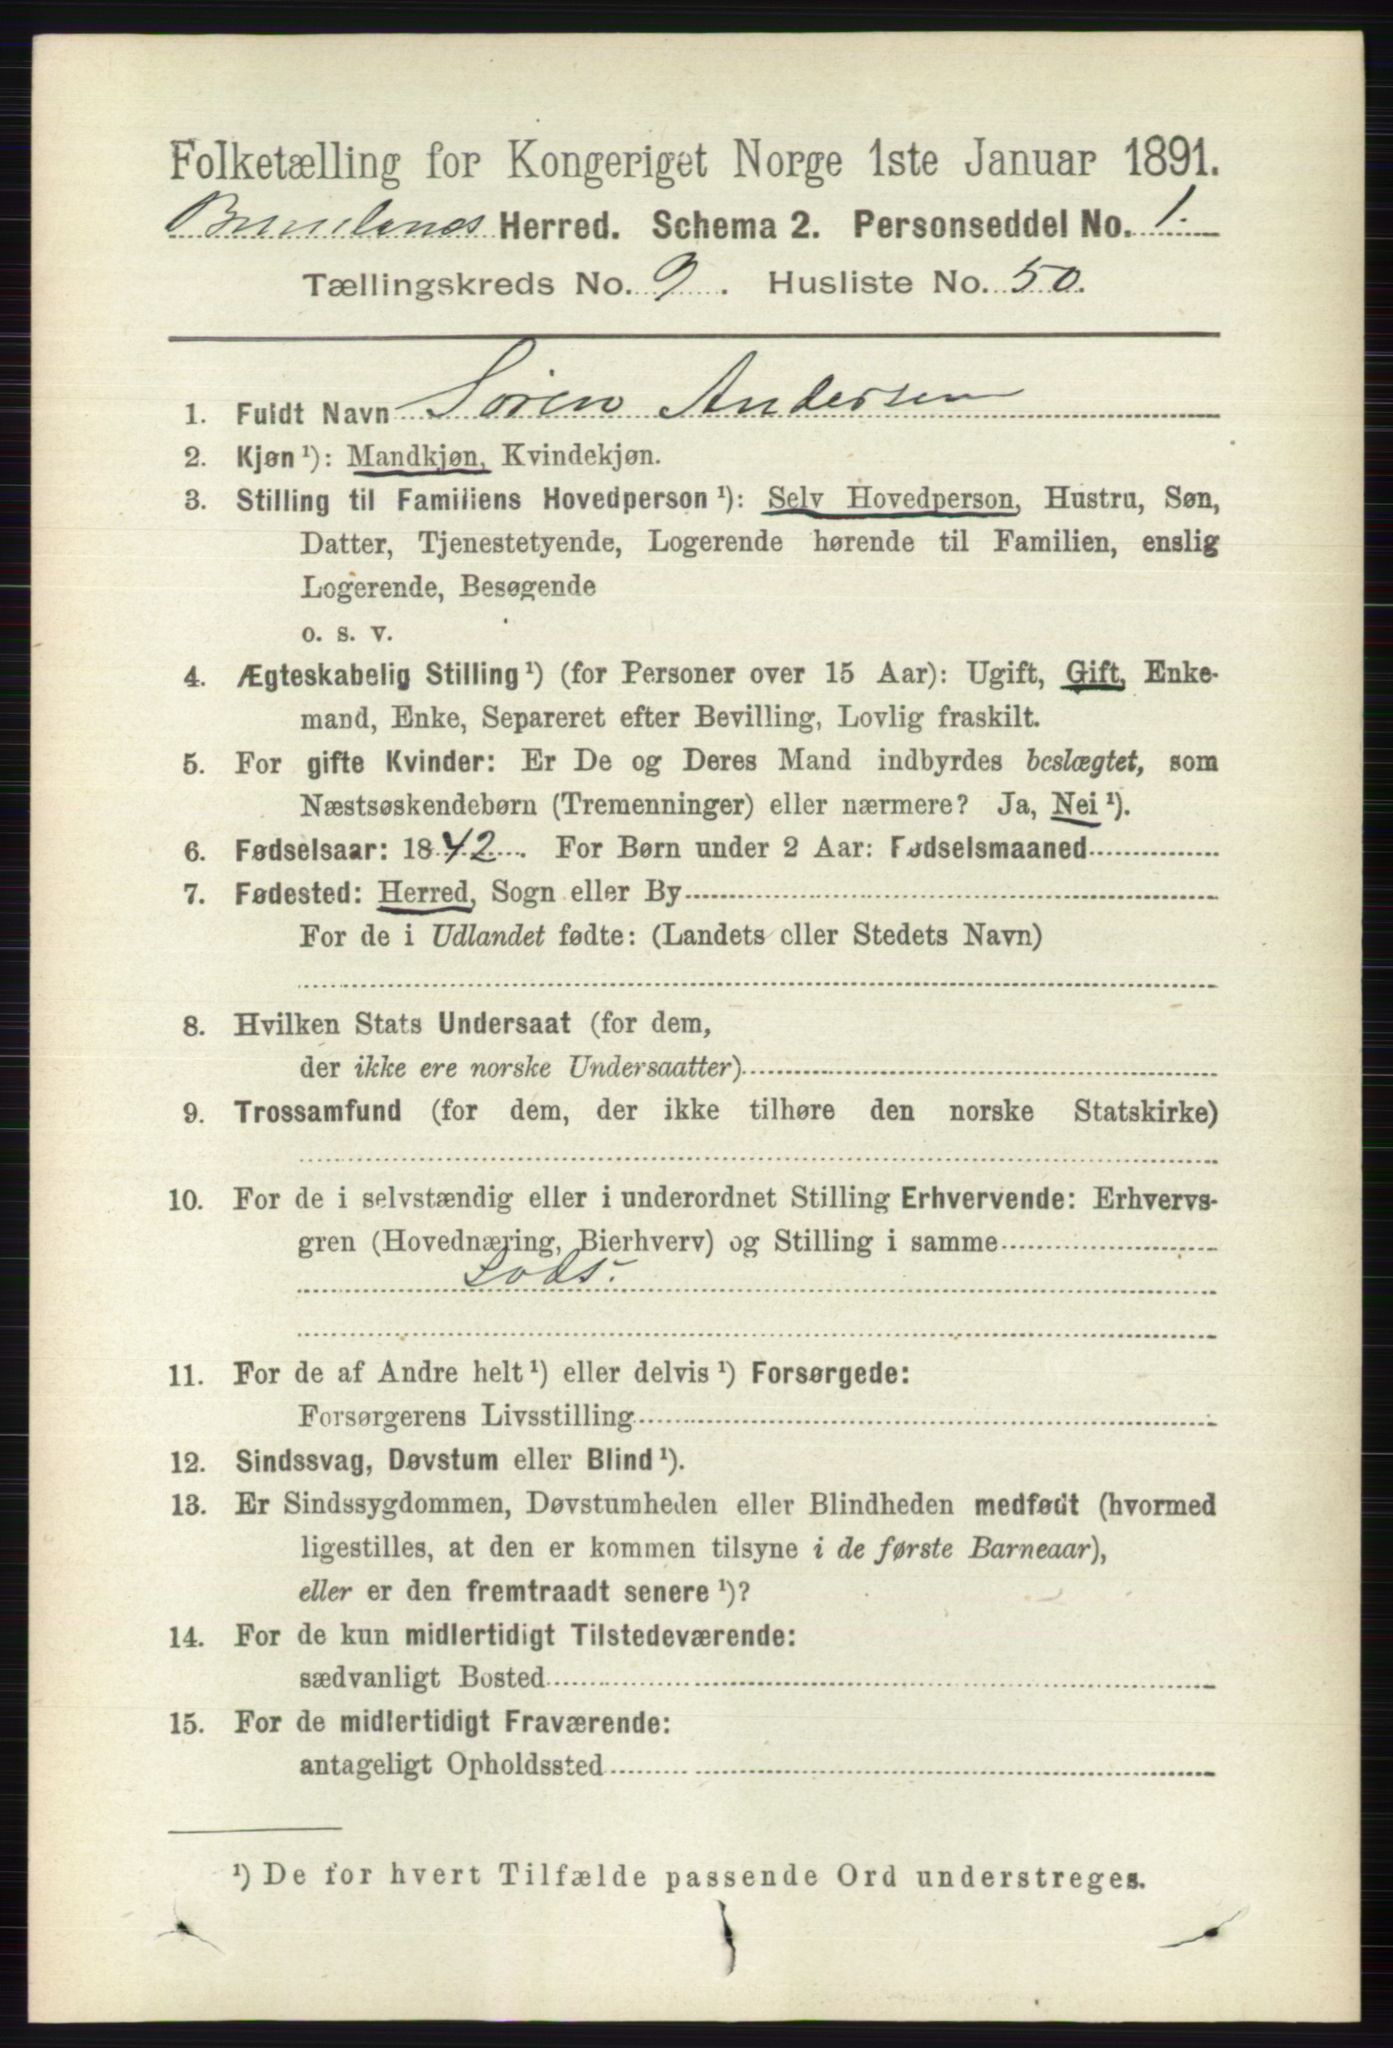 Folketælling for Kongeriget Norge 1ste Januar 1891.
Brunlanes Herred. Schema 2. Personseddel No. 1.
Tællingskreds No. 9. Husliste No. 50.
1. Fuldt Navn Søren Andersen
2. Kjøn ¹): Mandkjøn, Kvindekjøn.
3. Stilling til Familiens Hovedperson ¹): Selv Hovedperson, Hustru, Søn,
Datter, Tjenestetyende, Logerende hørende til Familien, enslig
Logerende, Besøgende
o. s. v.
4. Ægteskabelig Stilling ¹) (for Personer over 15 Aar): Ugift, Gift, Enke-
mand, Enke, Separeret efter Bevilling, Lovlig fraskilt.
5. For gifte Kvinder: Er De og Deres Mand indbyrdes beslægtet, som
Næstsøskendebørn (Tremenninger) eller nærmere? Ja, Nei ¹).
6. Fødselsaar: 1842. For Børn under 2 Aar: Fødselsmaaned
7. Fødested: Herred, Sogn eller By
For de i Udlandet fødte: (Landets eller Stedets Navn)
8. Hvilken Stats Undersaat (for dem,
der ikke ere norske Undersaatter)
9. Trossamfund (for dem, der ikke tilhøre den norske Statskirke)
10. For de i selvstændig eller i underordnet Stilling Erhvervende: Erhvervs-
gren (Hovednæring, Bierhverv) og Stilling i samme
Lods.
11. For de af Andre helt ¹) eller delvis ¹) Forsørgede:
Forsørgerens Livsstilling
12. Sindssvag, Døvstum eller Blind ¹).
13. Er Sindssygdommen, Døvstumheden eller Blindheden medfødt (hvormed
ligestilles, at den er kommen tilsyne i de første Barneaar),
eller er den fremtraadt senere ¹)?
14. For de kun midlertidigt Tilstedeværende:
sædvanligt Bosted
15. For de midlertidigt Fraværende:
antageligt Opholdssted
¹) De for hvert Tilfælde passende Ord understreges.